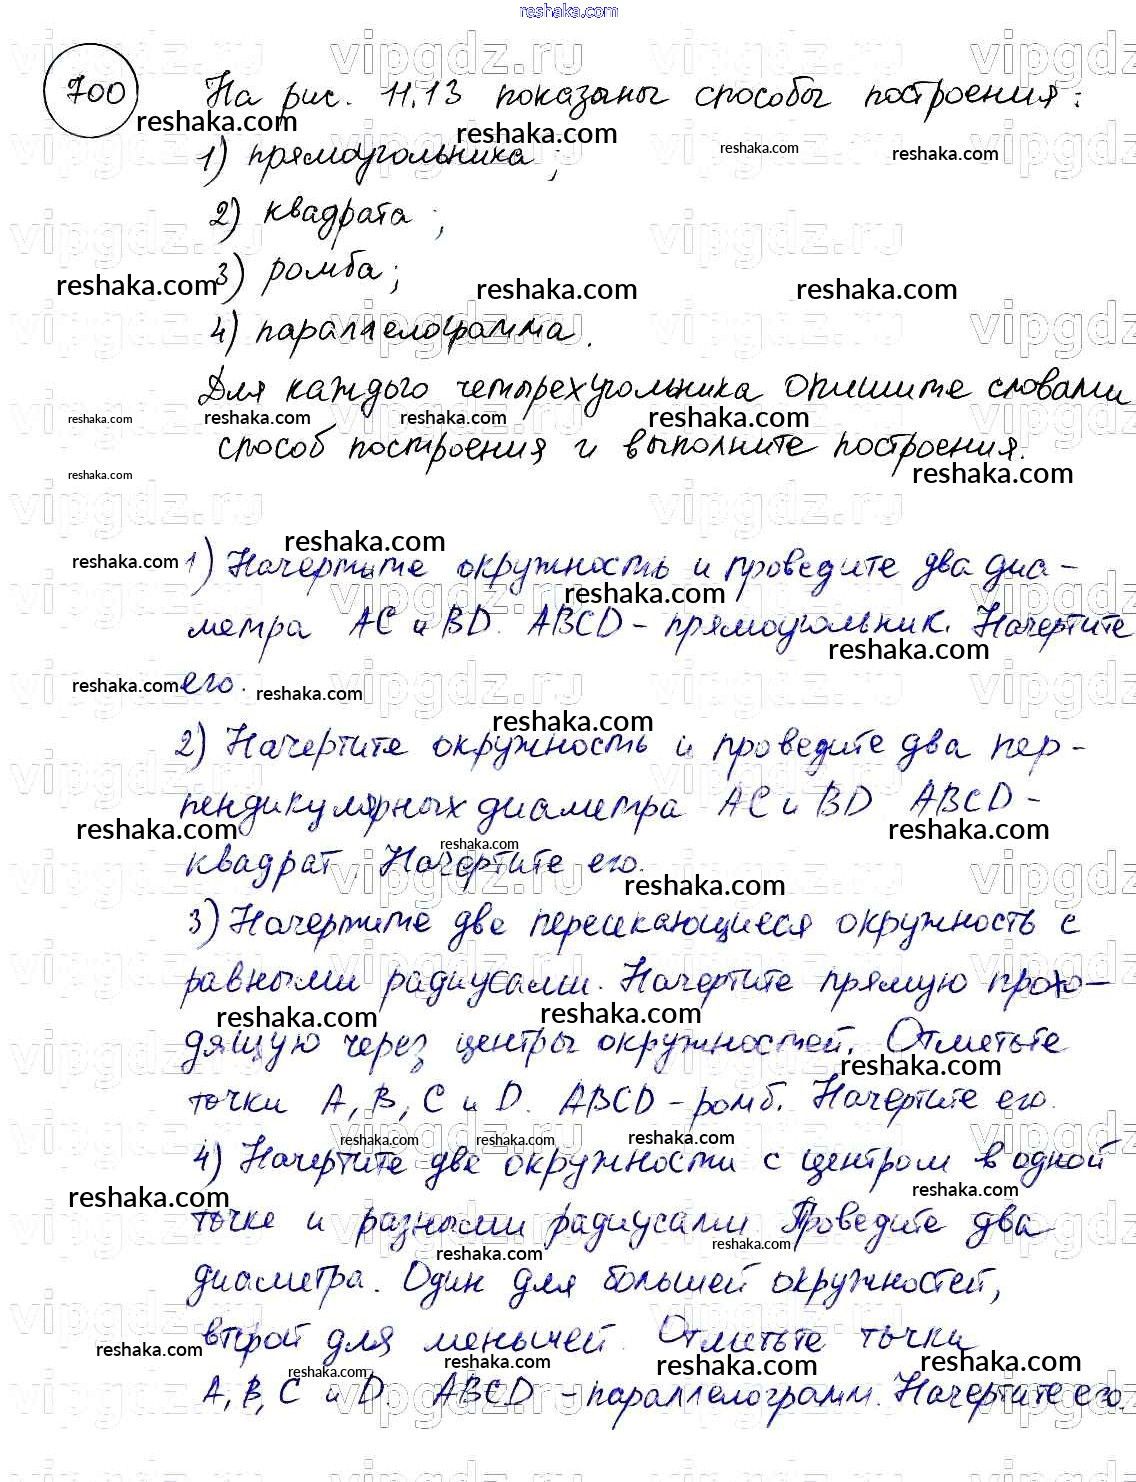 www.euroki.com
700 На рис. 11.13 показаны способы построения:
1) прямоугольника;
2) квадрата;
3) ромба;
4) параллелограмма.
Для каждого четырехугольника опишите словами
способ построения и выполните построения.
1) Начертите окружность и проведите два диа-
метра AC и BD. ABCD - прямоугольник. Начертите
его.
2) Начертите окружность и проведите два пер-
пендикулярных диаметра AC и BD ABCD -
квадрат. Начертите его.
3) Начертите две пересекающиеся окружность с
равными радиусами. Начертите прямую прохо-
дящую через центры окружностей. Отметьте
точки A, B, C и D. ABCD - ромб. Начертите его.
4) Начертите две окружности с центром в одной
точке и разными радиусами. Проведите два
диаметра. Один для большей окружностей,
второй для меньшей. Отметьте точки
A, B, C и D. ABCD - параллелограмм. Начертите его.
reshaka.com
vipgdz.ru